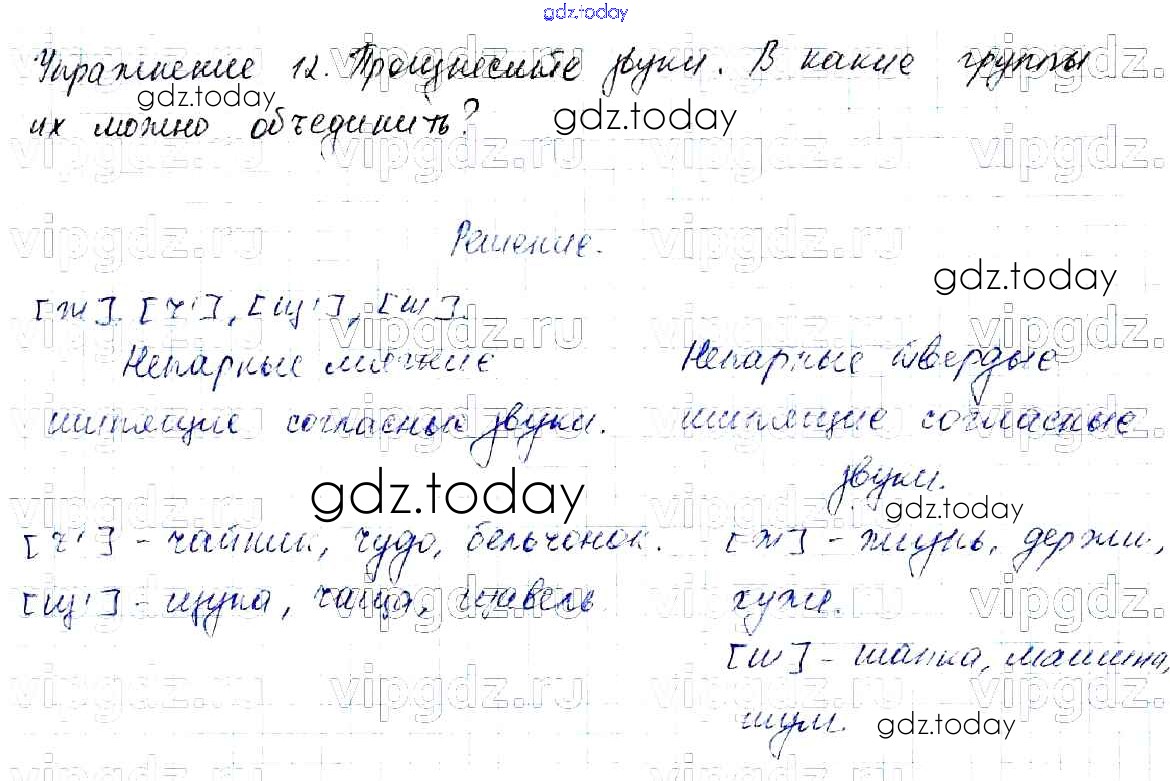 gdz.today
Упражнение 12. Произнесите звуки. В какие группы
их можно объединить?
Решение.
[ж]. [ч'], [щ'], [ш].
Непарные мягкие
шипящие согласные звуки.
[ч'] - чайник, чудо, бельчонок.
[щ'] - щука, чаща, щавель
Непарные твердые
шипящие согласные
звуки.
[ж] - жизнь, держи,
хуже.
[ш] - шапка, машина,
шум.
gdz.today
gdz.today
gdz.today
gdz.today
gdz.today
gdz.today
vipgdz.ru